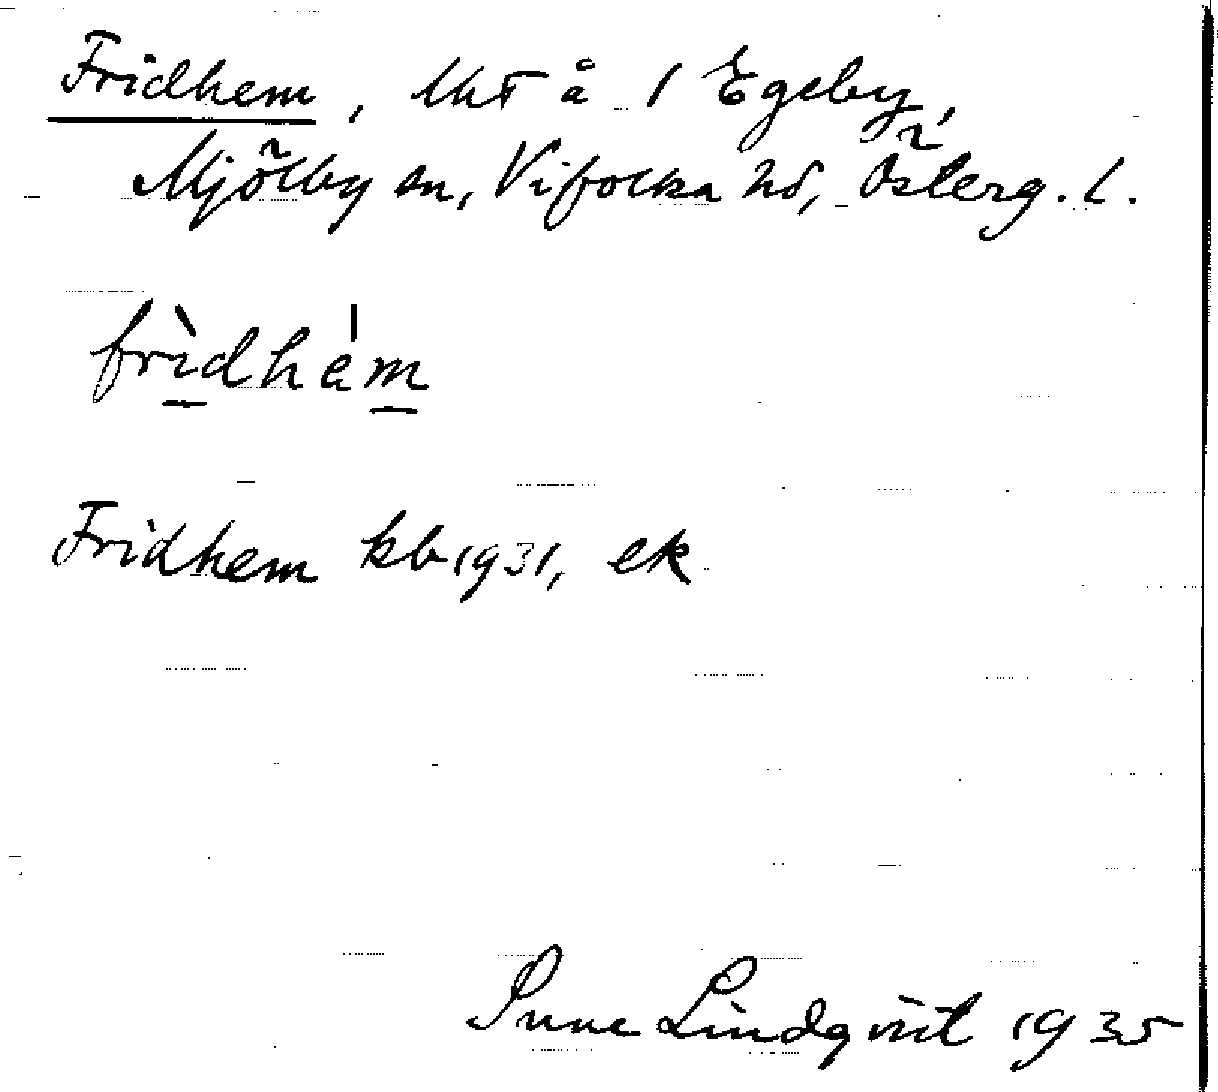 Fridhem, lht å 1 Egeby,
Mjölby sn, Vifolka hd, Österg. l.
fridhem
Fridhem kb 1931, ek
Sune Lindqvist 1935